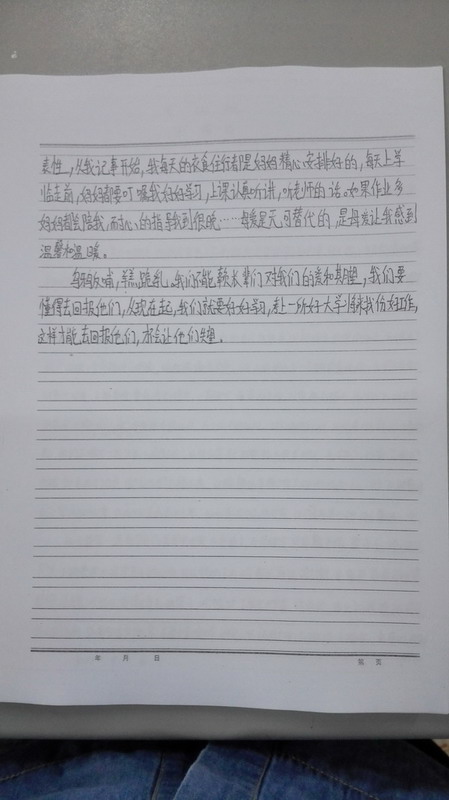 表性,从我记事开始,我每天的衣食住行都是妈妈精心安排好的,每天上学
临走前,妈妈都要叮嘱我好好学习,上课认真听讲,听老师的话。如果作业多
妈妈都会陪我,耐心的指导我到很晚……母爱是无可替代的,是母爱让我感到
温馨和温暖。
乌鸦反哺,羊羔跪乳。我们不能辜负长辈们对我们的爱和期望,我们要
懂得去回报他们,从现在起,我们就要好好学习,考上一所好大学,将来找份好工作,
这样才能去回报他们,不会让他们失望。
年 月 日
第 页